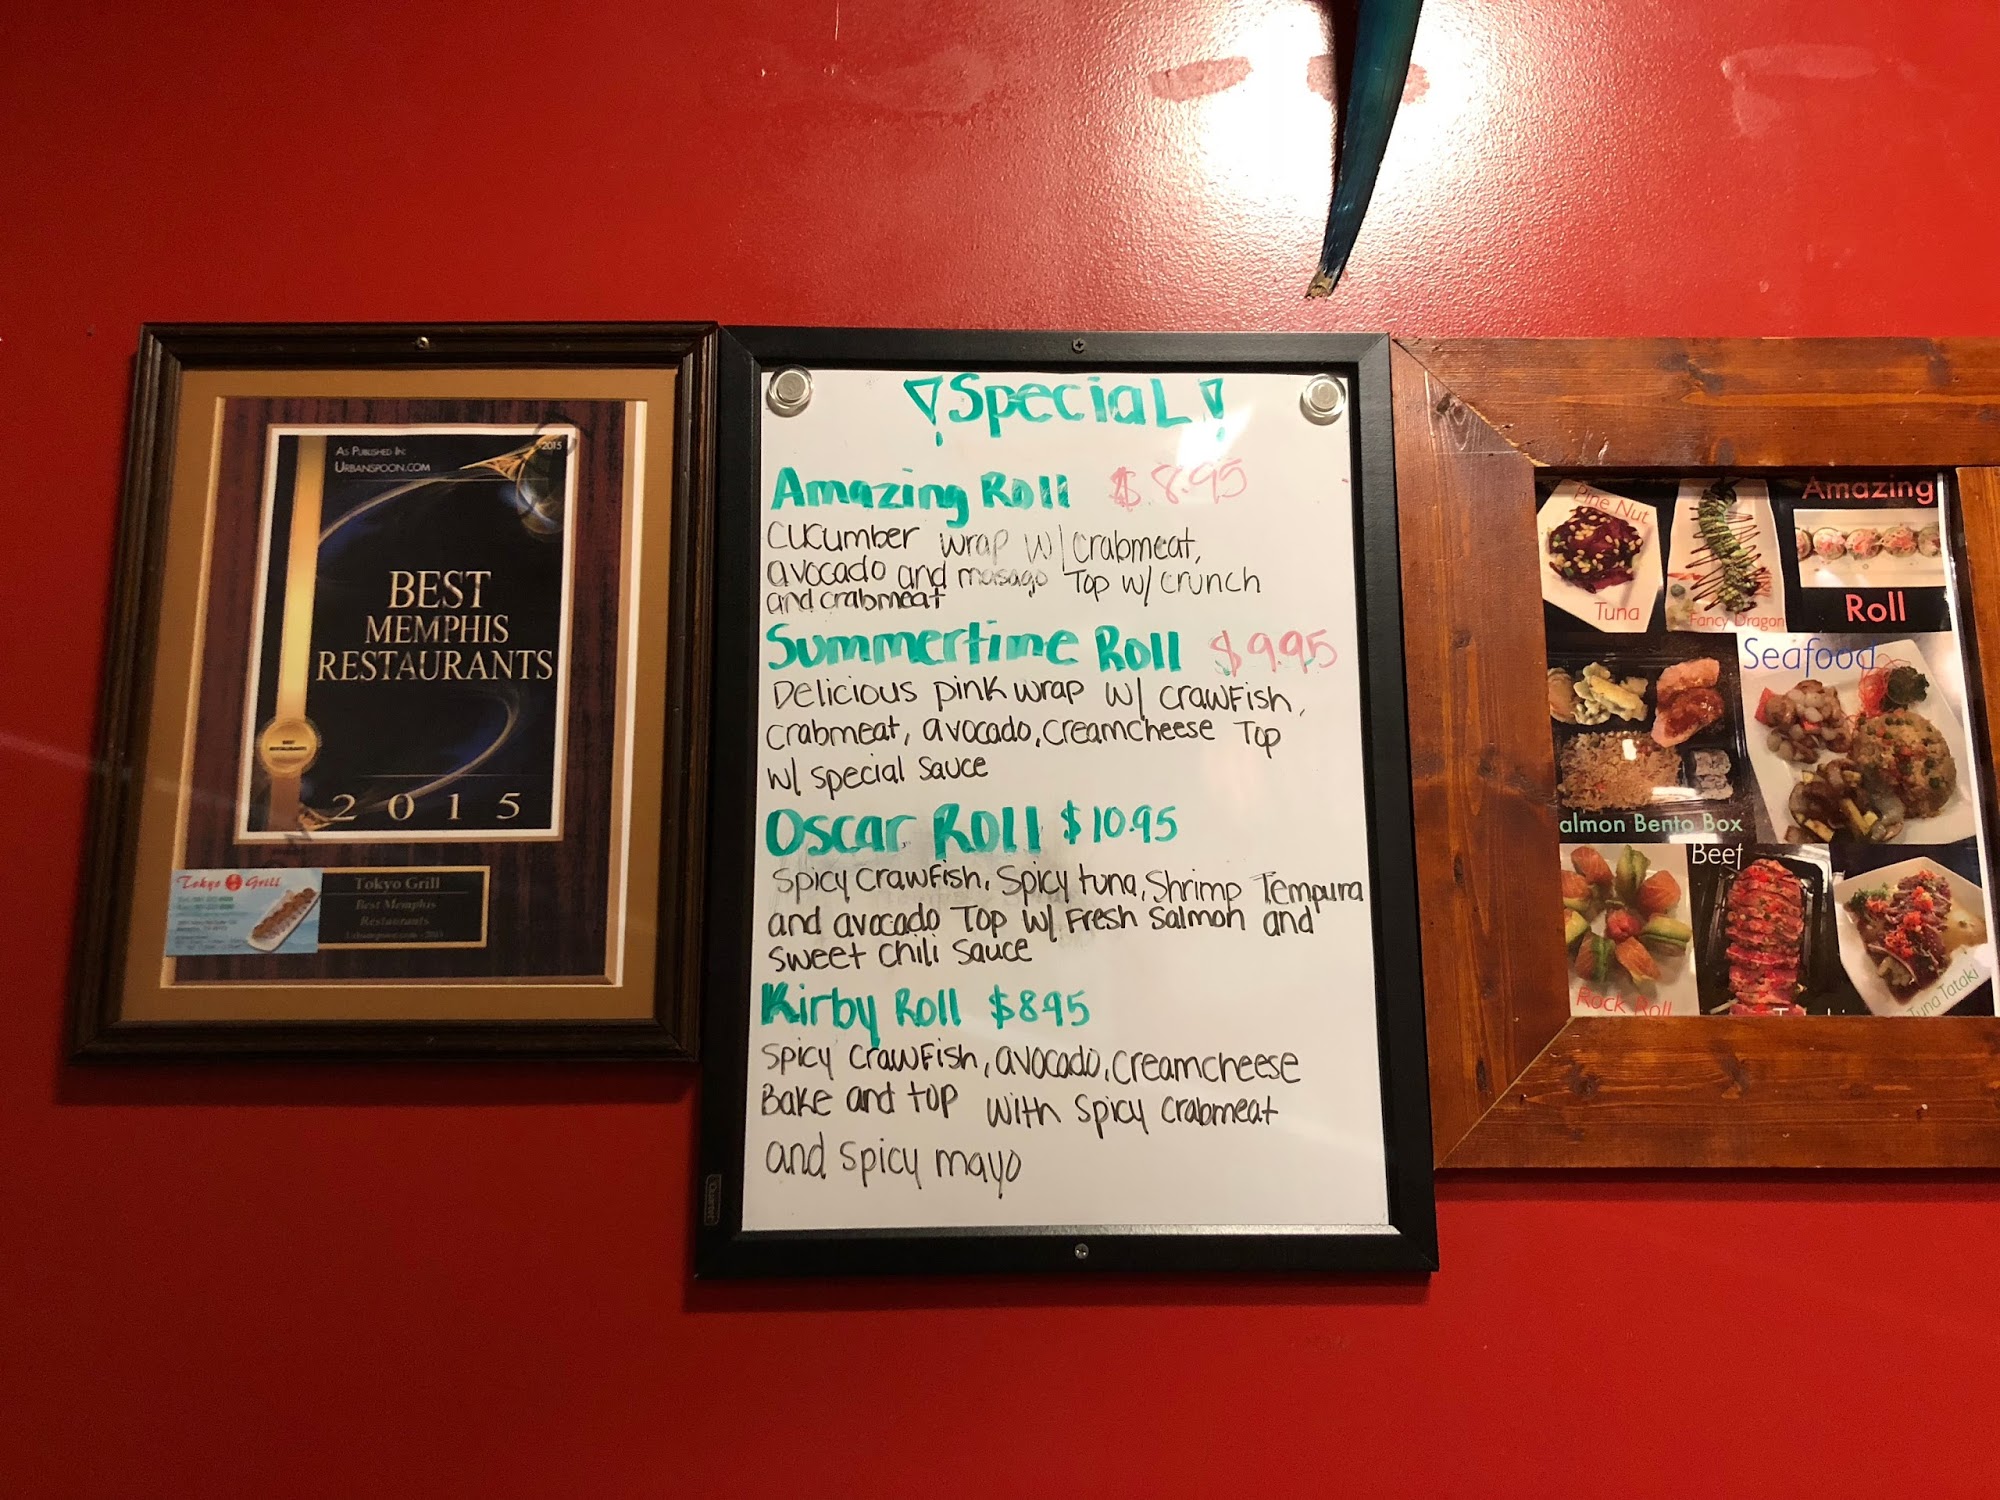 As Published In:
Urbanspoon.com
2015
BEST
MEMPHIS
RESTAURANTS
2015
Tokyo Grill
Tokyo Grill
Best Memphis
Restaurants
Urbanspoon.com - 2015
¡Special!
Amazing Roll $8.95
Cucumber wrap w/ crabmeat,
avocado and masago Top w/ crunch
and crabmeat
Summertime Roll $9.95
Delicious pink wrap w/ crawfish,
crabmeat, avocado, creamcheese Top
w/ special sauce
Oscar Roll $10.95
Spicy crawfish, spicy tuna, shrimp Tempura
and avocado Top w/ Fresh Salmon and
sweet chili sauce
Kirby Roll $8.95
spicy crawfish, avocado, creamcheese
Bake and top with spicy crabmeat
and spicy mayo
Quartet
Pine Nut
Tuna
Fancy Dragon
Amazing
Roll
Seafood
almon Bento Box
Beef
Rock Roll
Tuna Tataki